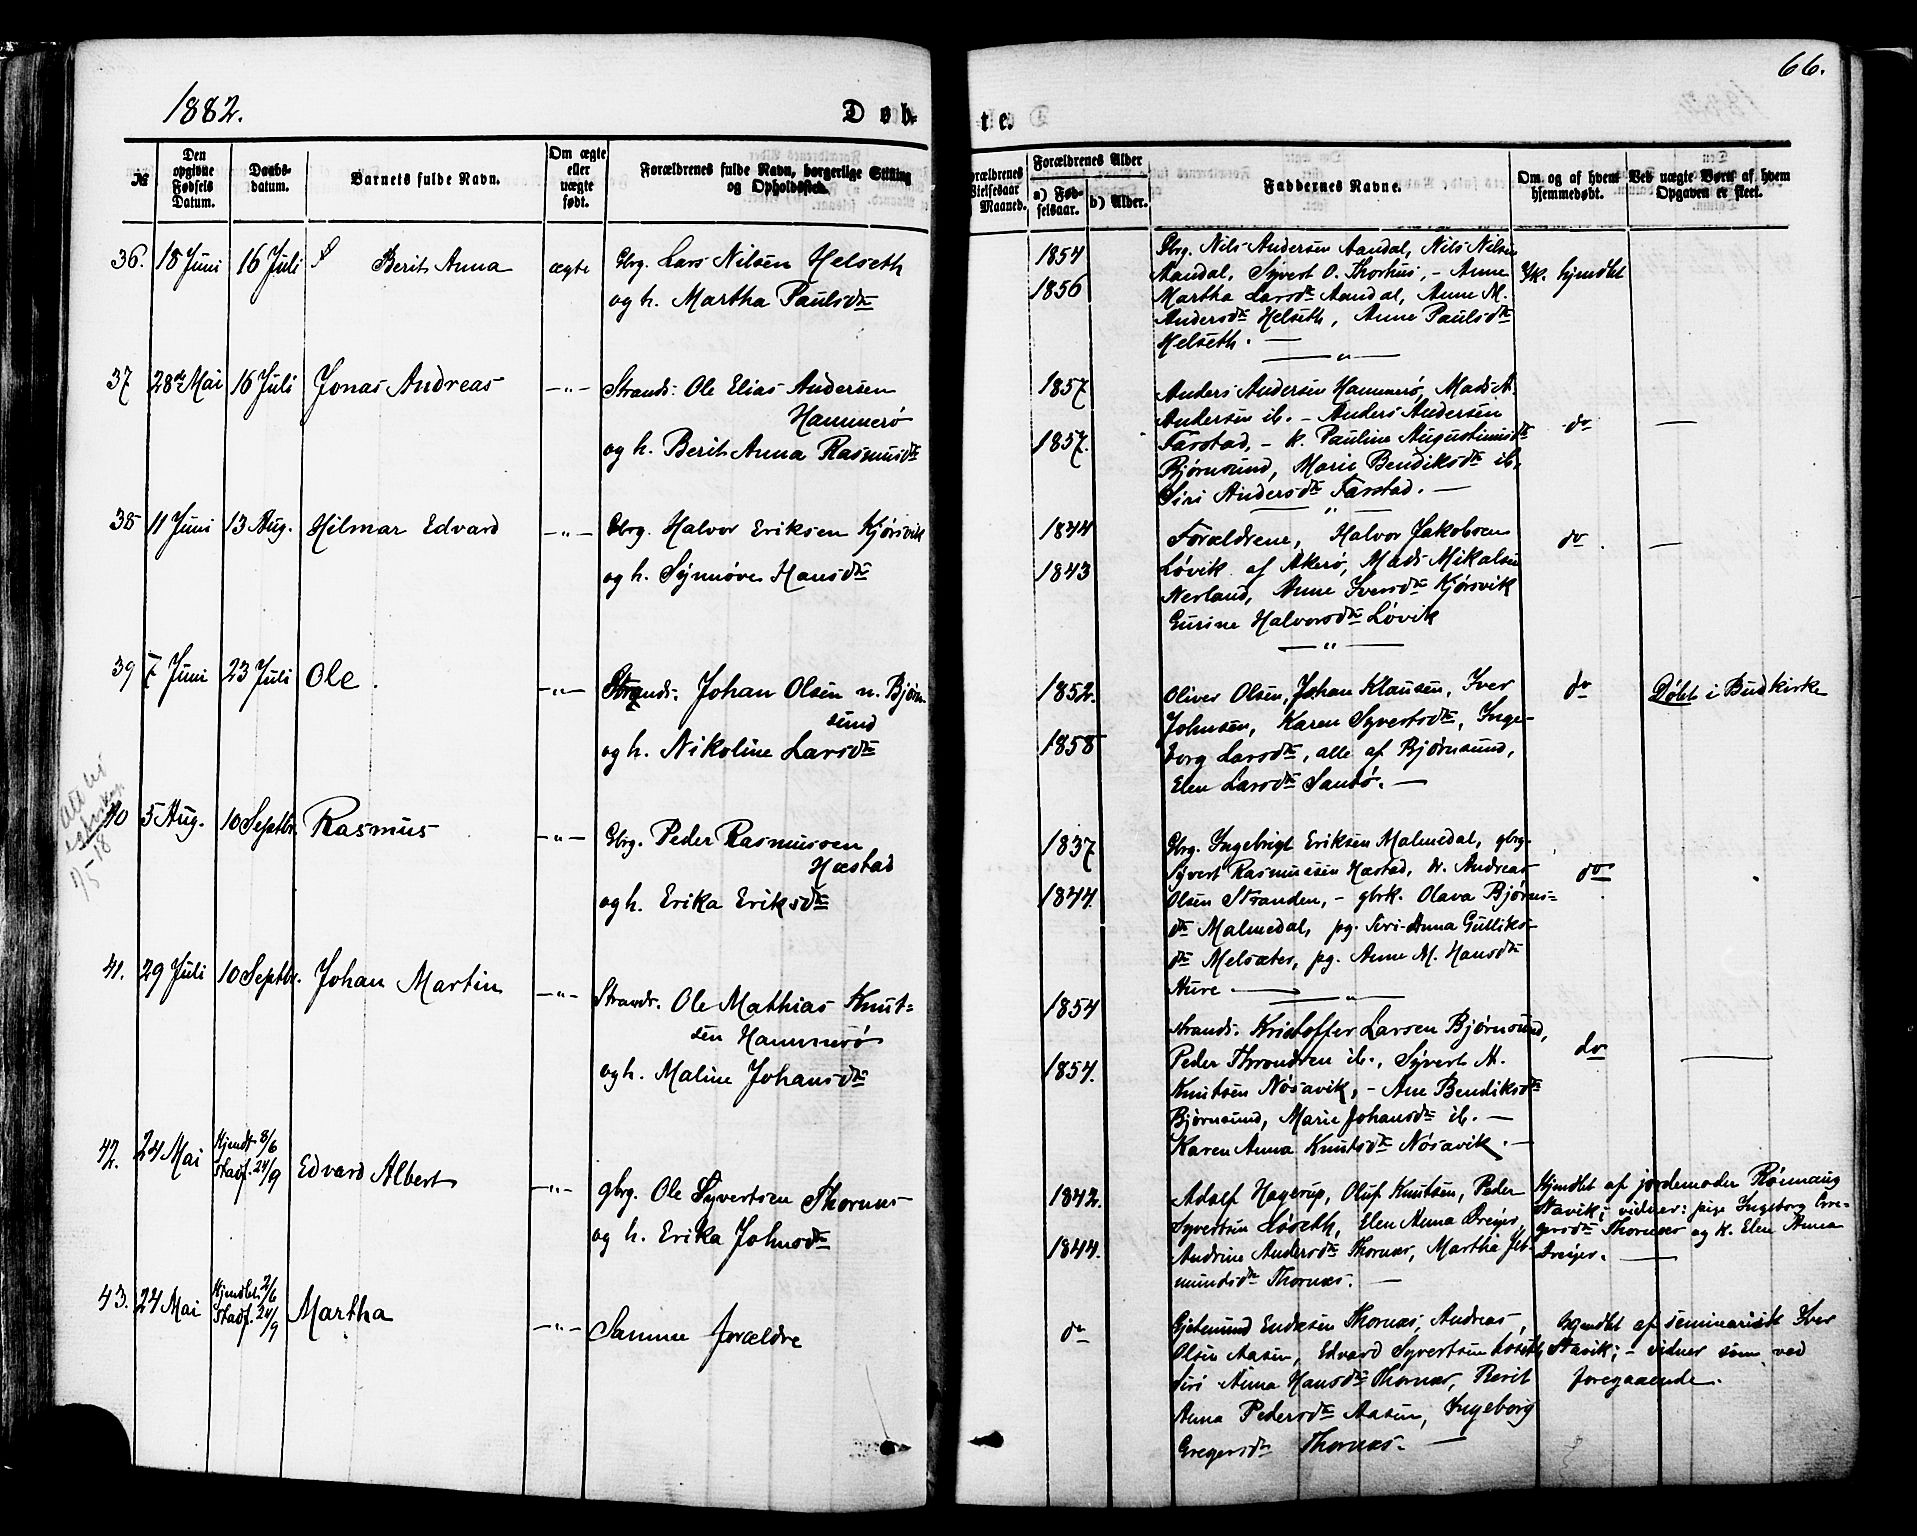 1882.
66.
Døb-
te.
№
Den opgivne Fødsels Datum.
Daabs-datum.
Barnets fulde Navn.
Om ægte eller uægte født.
Forældrenes fulde Navn, borgerlige Stilling og Opholdssted.
Forældrenes Vielsesaar Maaned.
Forældrenes Alder
a) Fødselsaar.
b) Alder.
Faddernes Navne.
Om og af hvem hjemmedøbt.
Ved uægte Børn af hvem Opgaven er skeet.
36. 18 Juni 16 Juli Berit Anna ægte Gbrg. Lars Nilsen Helseth
og h. Martha Paulsdtr
1854
1856
Gbrg. Nils Andersen Aandal, Nils Nilsen
Aandal, Syvert O. Thorhus, - Anne
Martha Larsdtr Aandal, Anne M.
Andersdtr Helseth, Anne Paulsdtr
Helseth. —
hjemdbt
37 28de Mai 16 Juli Jonas Andreas —"— Strands. Ole Elias Andersen
Hammerø
og h. Berit Anna Rasmusdtr
1857
1857.
Anders Andersen Hammerø, Mads A.
Andersen ib. - Anders Andersen
Farstad, - k. Pauline Augustinusdtr
Bjørnsund, Marie Bendiksdtr ib.
Siri Andersdtr Farstad. —
do —
38 11 Juni 13 Aug. Hilmar Edvard —"— Gbrg. Halvor Eriksen Kjørsvik
og h. Synnøve Hansdtr
1844
1843
Forældrene, Halvor Jakobsen
Løvik af Akerø, Mads Mikalsen
Nerland, Anne Iversdtr Kjørsvik
Gurine Halvorsdtr Løvik
do. —
39 7 Juni 23 Juli Ole. —"— Strands. Johan Olsen n. Bjørn-
sund
og h. Nikoline Larsdtr
1852.
1858
Oliver Olsen, Johan Klausen, Iver
Johnsen, Karen Syvertsdtr, Inge-
borg Larsdtr, alle af Bjørnsund,
Elen Larsdtr Sandø. —
do Døbt i Budkirke
40 5 Aug. 10 Septbr. Rasmus —"— Gbrg. Peder Rasmussen
Hæstad
og h. Erika Eriksdtr
1837
1844.
Gbrg. Ingebrigt Eriksen Malmedal, gbrg.
Syvert Rasmussen Hæstad, dr. Andreas
Olsen Stranden, - gbrk. Olava Bjørns-
dtr Malmedal, pg. Siri Anna Gulliks-
dtr Melsæter, pg. Anne M. Hansdtr
Hure —
do
41. 29 Juli 10 Septbr. Johan Martin —"— Strands. Ole Mathias Knut-
sen Hammerø
og h. Maline Johansdtr
1854
1854.
Strands. Kristoffer Larsen Bjørnsund,
Peder Throndsen ib., Syvert M.
Knutsen Nøsavik, - Ane Bendiksdtr
Bjørnsund, Marie Johansdtr ib. —
Karen Anna Knutsdtr Nøsavik. —
do —
42. 24 Mai Hjemdt 3/6
Stadf. 24/9 Edvard Albert —"— gbrg. Ole Syvertsen Thornæs
og h. Erika Johnsdtr
1842.
1844.
Adolf Hagerup, Oluf Knutsen, Peder
Syvertsen Løseth, Elen Anna Dreyer,
Andrine Andersdtr Thornæs, Martha Jet-
mundsdtr Thornæs. —
Hjemdbt af jordemoder Rønnaug
Stavik; vidner: pige Ingeborg Gre-
gersdtr Thornæs og k. Elen Anna
Dreyer. —
43. 24 Mai Hjemdbt 2/6
Stadf. 24/9 Martha —"— Samme forældre
do
Gjetmund Endresen Thornæs, Andreas
Olsen Aasen, Edvard Syvertsen Løseth
Siri Anna Hansdtr Thornæs, Berit
Anna Pedersdtr Aasen, Ingeborg
Gregersdtr Thornæs. —
Hjemdbt af seminarist Iver
Stavik; - vidner som ved
foregaaende.